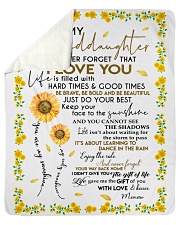 MY
NEVER FORGET THAT
I LOVE YOU
Life is filled with
HARD TIMES & GOOD TIMES
BE BRAVE, BE BOLD AND BE BEAUTIFUL
JUST DO YOUR BEST
Keep your
face to the sunshine
AND YOU CANNOT SEE
THE SHADOWS
Life isn't about waiting for
the storm to pass
IT'S ABOUT LEARNING TO
DANCE IN THE RAIN
Enjoy the ride
And never forget
YOUR WAY BACK HOME
I DIDN'T GIVE YOU The gift of life
Life gave me the GIFT OF you
WITH LOVE & kisses
you are my sunshine